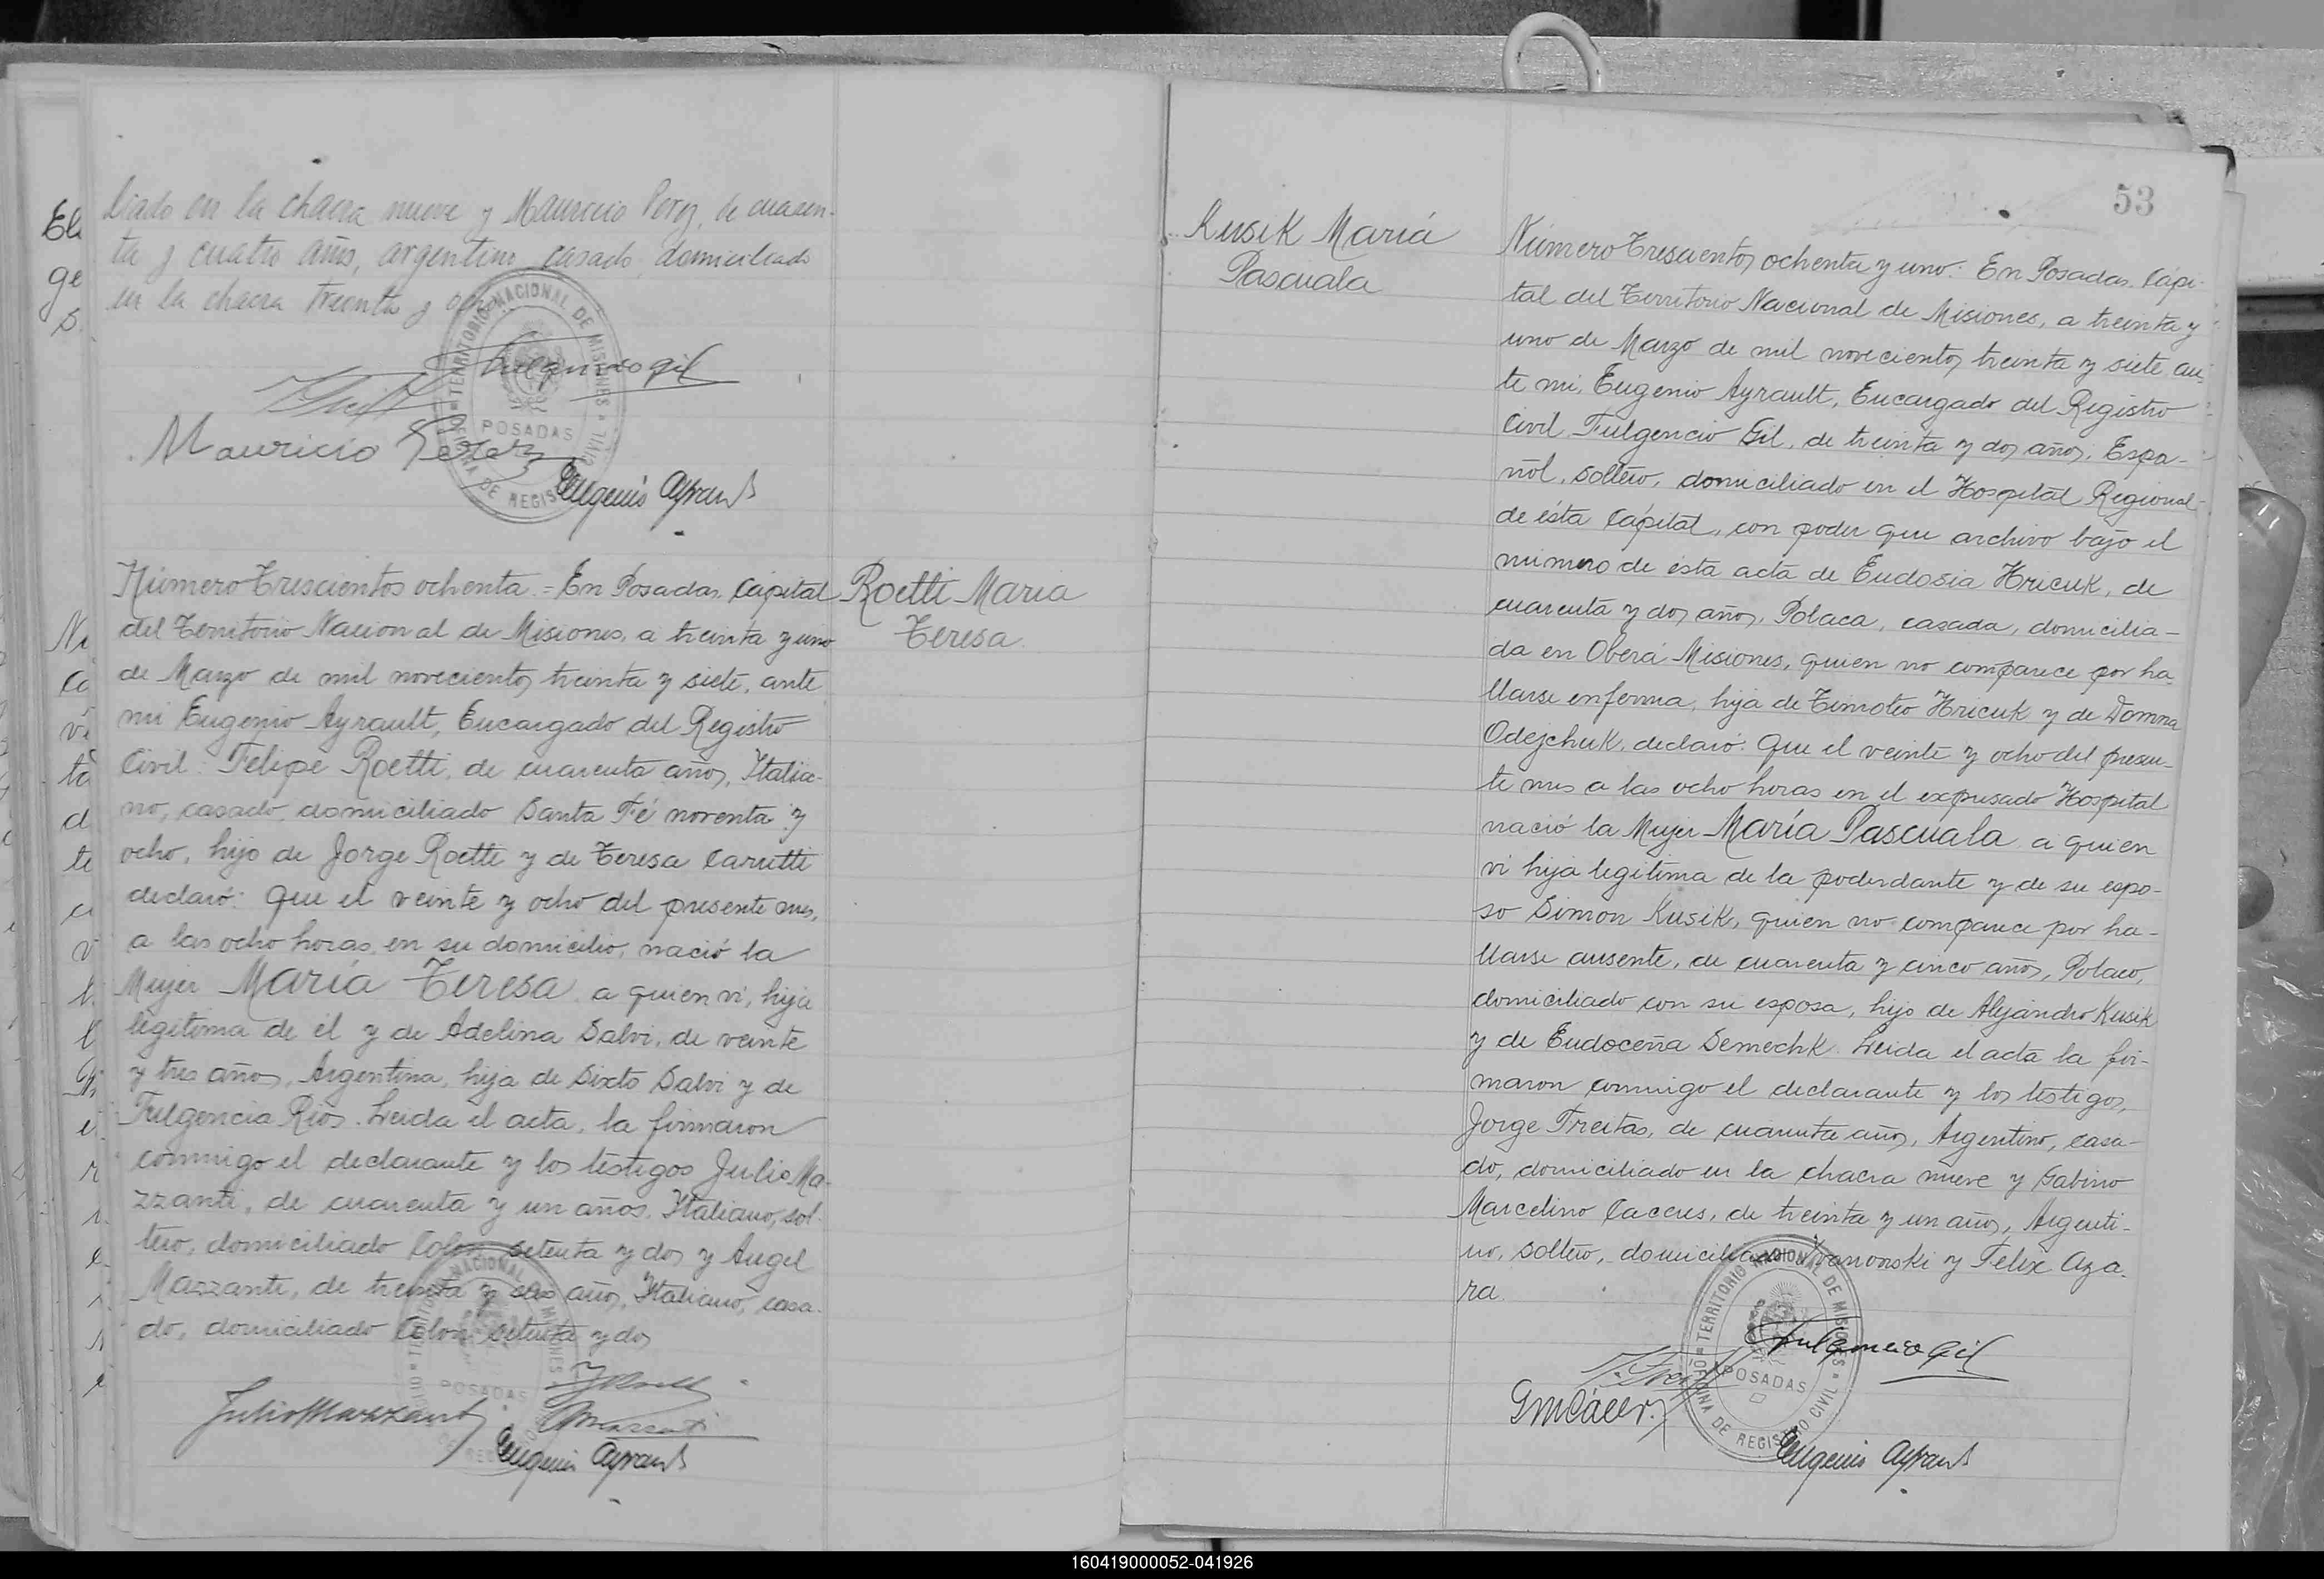 liado en la chacra nueve y Mauricio Perez, de cuaren-
ta y cuatro años, argentino, casado, domiciliado
en la chacra treinta y ocho
Fulgencio Gil
Mauricio Perez
Eugenio Ayrault
TERRITORIO NACIONAL DE MISIONES
POSADAS
OFICINA DE REGISTRO CIVIL
Roetti Maria
Teresa
Número Trescientos ochenta.= En Posadas, Capital
del Territorio Nacional de Misiones, a treinta y uno
de Marzo de mil novecientos treinta y siete, ante
mi Eugenio Ayrault, Encargado del Registro
Civil: Felipe Roetti, de cuarenta años, Italia-
no, casado, domiciliado Santa Fé noventa y
ocho, hijo de Jorge Roetti y de Teresa Carutti
declaró: Que el veinte y ocho del presente mes,
a las ocho horas, en su domicilio, nació la
Mujer María Teresa a quien vi, hija
legitima de él y de Adelina Salvi, de veinte
y tres años, Argentina, hija de Sixto Salvi y de
Fulgencia Rios. Leida el acta, la firmaron
conmigo el declarante y los testigos Julio Ma-
zzanti, de cuarenta y un años, Italiano, sol-
tero, domiciliado Colon setenta y dos y Angel
Mazzanti, de treinta y seis años, Italiano, casa-
do, domiciliado Colon setenta y dos
Julio Mazzanti
Eugenio Ayrault
TERRITORIO NACIONAL DE MISIONES
POSADAS
53
Kusik María
Pascuala
Número Trescientos ochenta y uno: En Posadas, Capi-
tal del Territorio Nacional de Misiones, a treinta y
uno de Marzo de mil novecientos treinta y siete, an-
te mi, Eugenio Ayrault, Encargado del Registro
Civil Fulgencio Gil, de treinta y dos años, Espa-
ñol, soltero, domiciliado en el Hospital Regional
de ésta Capital, con poder que archivo bajo el
número de ésta acta de Eudosia Hricuk, de
cuarenta y dos años, Polaca, casada, domicilia-
da en Oberá Misiones, quien no comparece por ha-
llarse enferma, hija de Timoteo Hricuk y de Domna
Odejchuk, declaró: Que el veinte y ocho del presen-
te mes a las ocho horas en el expresado Hospital
nació la Mujer María Pascuala a quien
vi hija legitima de la poderdante y de su espo-
so Simon Kusik, quien no comparece por ha-
llarse ausente, de cuarenta y cinco años, Polaco,
domiciliado con su esposa, hijo de Alejandro Kusik
y de Eudoceña Semechk. Leida el acta la fir-
maron conmigo el declarante y los testigos,
Jorge Freitas, de cuarenta años, Argentino, casa-
do, domiciliado en la chacra nueve y Gabino
Marcelino Caceres, de treinta y un años, Argenti-
no, soltero, domiciliado Ivanowski y Félix Aza-
ra.
Fulgencio Gil
GMCáceres
Eugenio Ayrault
TERRITORIO NACIONAL DE MISIONES
POSADAS
OFICINA DE REGISTRO CIVIL
160419000052-041926